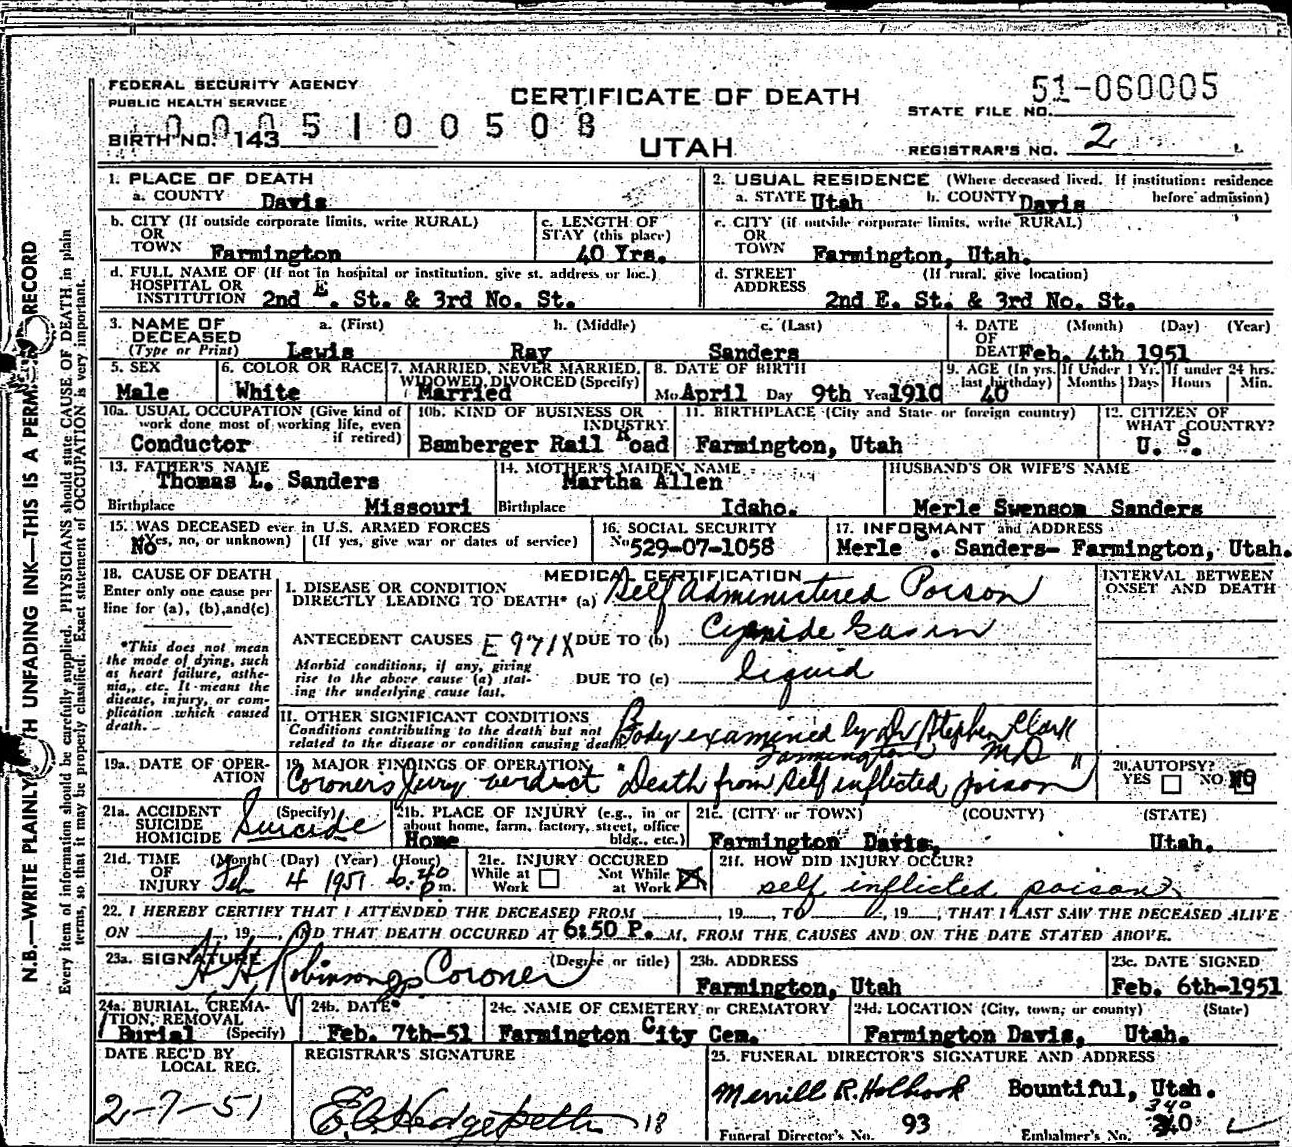 FEDERAL SECURITY AGENCY
PUBLIC HEALTH SERVICE
CERTIFICATE OF DEATH
51-060005
STATE FILE NO.
0005100508
BIRTH NO. 143
UTAH
REGISTRAR'S NO. 2
1. PLACE OF DEATH
a. COUNTY Davis
2. USUAL RESIDENCE (Where deceased lived. If institution: residence before admission)
a. STATE Utah b. COUNTY Davis
b. CITY (If outside corporate limits, write RURAL)
OR
TOWN Farmington
c. LENGTH OF
STAY (this place)
40 Yrs.
c. CITY (if outside corporate limits, write RURAL)
OR
TOWN Farmington, Utah.
d. FULL NAME OF (If not in hospital or institution, give st. address or loc.)
HOSPITAL OR
INSTITUTION 2nd E. St. & 3rd No. St.
d. STREET (If rural, give location)
ADDRESS
2nd E. St. & 3rd No. St.
3. NAME OF DECEASED
(Type or Print)
a. (First) b. (Middle) c. (Last)
Lewis Ray Sanders
4. DATE (Month) (Day) (Year)
OF
DEATH Feb. 4th 1951
5. SEX
Male
6. COLOR OR RACE
White
7. MARRIED, NEVER MARRIED,
WIDOWED, DIVORCED (Specify)
Married
8. DATE OF BIRTH
Mo. April Day 9th Year 1910
9. AGE (In yrs. last birthday) 40
If Under 1 Yr. Months Days
If under 24 hrs. Hours Min.
10a. USUAL OCCUPATION (Give kind of
work done most of working life, even
if retired)
Conductor
10b. KIND OF BUSINESS OR
INDUSTRY
Bamberger Rail Road
11. BIRTHPLACE (City and State or foreign country)
Farmington, Utah
12. CITIZEN OF
WHAT COUNTRY?
U. S.
13. FATHER'S NAME
Thomas L. Sanders
Birthplace Missouri
14. MOTHER'S MAIDEN NAME
Martha Allen
Birthplace Idaho.
HUSBAND'S OR WIFE'S NAME
Merle Swenson Sanders
15. WAS DECEASED ever in U.S. ARMED FORCES
No (Yes, no, or unknown) (If yes, give war or dates of service)
16. SOCIAL SECURITY
No 529-07-1058
17. INFORMANT and ADDRESS
Merle S. Sanders- Farmington, Utah.
18. CAUSE OF DEATH
Enter only one cause per
line for (a), (b), and (c)
*This does not mean
the mode of dying, such
as heart failure, asthe-
nia, etc. It means the
disease, injury, or com-
plication which caused
death.
MEDICAL CERTIFICATION
I. DISEASE OR CONDITION
DIRECTLY LEADING TO DEATH* (a) Self Administered Poison
ANTECEDENT CAUSES E971X DUE TO (b) Cyanide Gas in
Morbid conditions, if any, giving
rise to the above cause (a) stat-
ing the underlying cause last.
DUE TO (c) liquid
INTERVAL BETWEEN
ONSET AND DEATH
II. OTHER SIGNIFICANT CONDITIONS
Conditions contributing to the death but not
related to the disease or condition causing death.
Body examined by Dr Stephen Clark
Farmington MD
19a. DATE OF OPER-
ATION
19. MAJOR FINDINGS OF OPERATION
Coroner's Jury verdict "Death from Self inflicted poison"
20. AUTOPSY?
YES NO NO
21a. ACCIDENT (Specify)
SUICIDE
HOMICIDE Suicide
21b. PLACE OF INJURY (e.g., in or
about home, farm, factory, street, office
bldg., etc.)
Home
21c. (CITY or TOWN) (COUNTY) (STATE)
Farmington Davis, Utah.
21d. TIME (Month) (Day) (Year) (Hour)
OF
INJURY Feb 4 1951 6:40 pm.
21e. INJURY OCCURED
While at Work Not While at Work
21f. HOW DID INJURY OCCUR?
self inflicted poison
22. I HEREBY CERTIFY THAT I ATTENDED THE DECEASED FROM , 19 , TO , 19 , THAT I LAST SAW THE DECEASED ALIVE
ON , 19 , AND THAT DEATH OCCURED AT 6:50 P. M. FROM THE CAUSES AND ON THE DATE STATED ABOVE.
23a. SIGNATURE (Degree or title)
H H Robinson Coroner
23b. ADDRESS
Farmington, Utah
23c. DATE SIGNED
Feb. 6th-1951
24a. BURIAL, CREMA-
TION, REMOVAL
Burial (Specify)
24b. DATE
Feb. 7th-51
24c. NAME OF CEMETERY or CREMATORY
Farmington City Cem.
24d. LOCATION (City, town, or county) (State)
Farmington Davis, Utah.
DATE REC'D BY
LOCAL REG.
2-7-51
REGISTRAR'S SIGNATURE
18
25. FUNERAL DIRECTOR'S SIGNATURE AND ADDRESS
Merrill R. Holbrook Bountiful, Utah.
340
Funeral Director's No. 93 Embalmer's No. 340
N.B.—WRITE PLAINLY WITH UNFADING INK—THIS IS A PERM RECORD
Every item of information should be carefully supplied. PHYSICIANS should state CAUSE OF DEATH in plain
terms, so that it may be properly classified. Exact statement of OCCUPATION is very important.